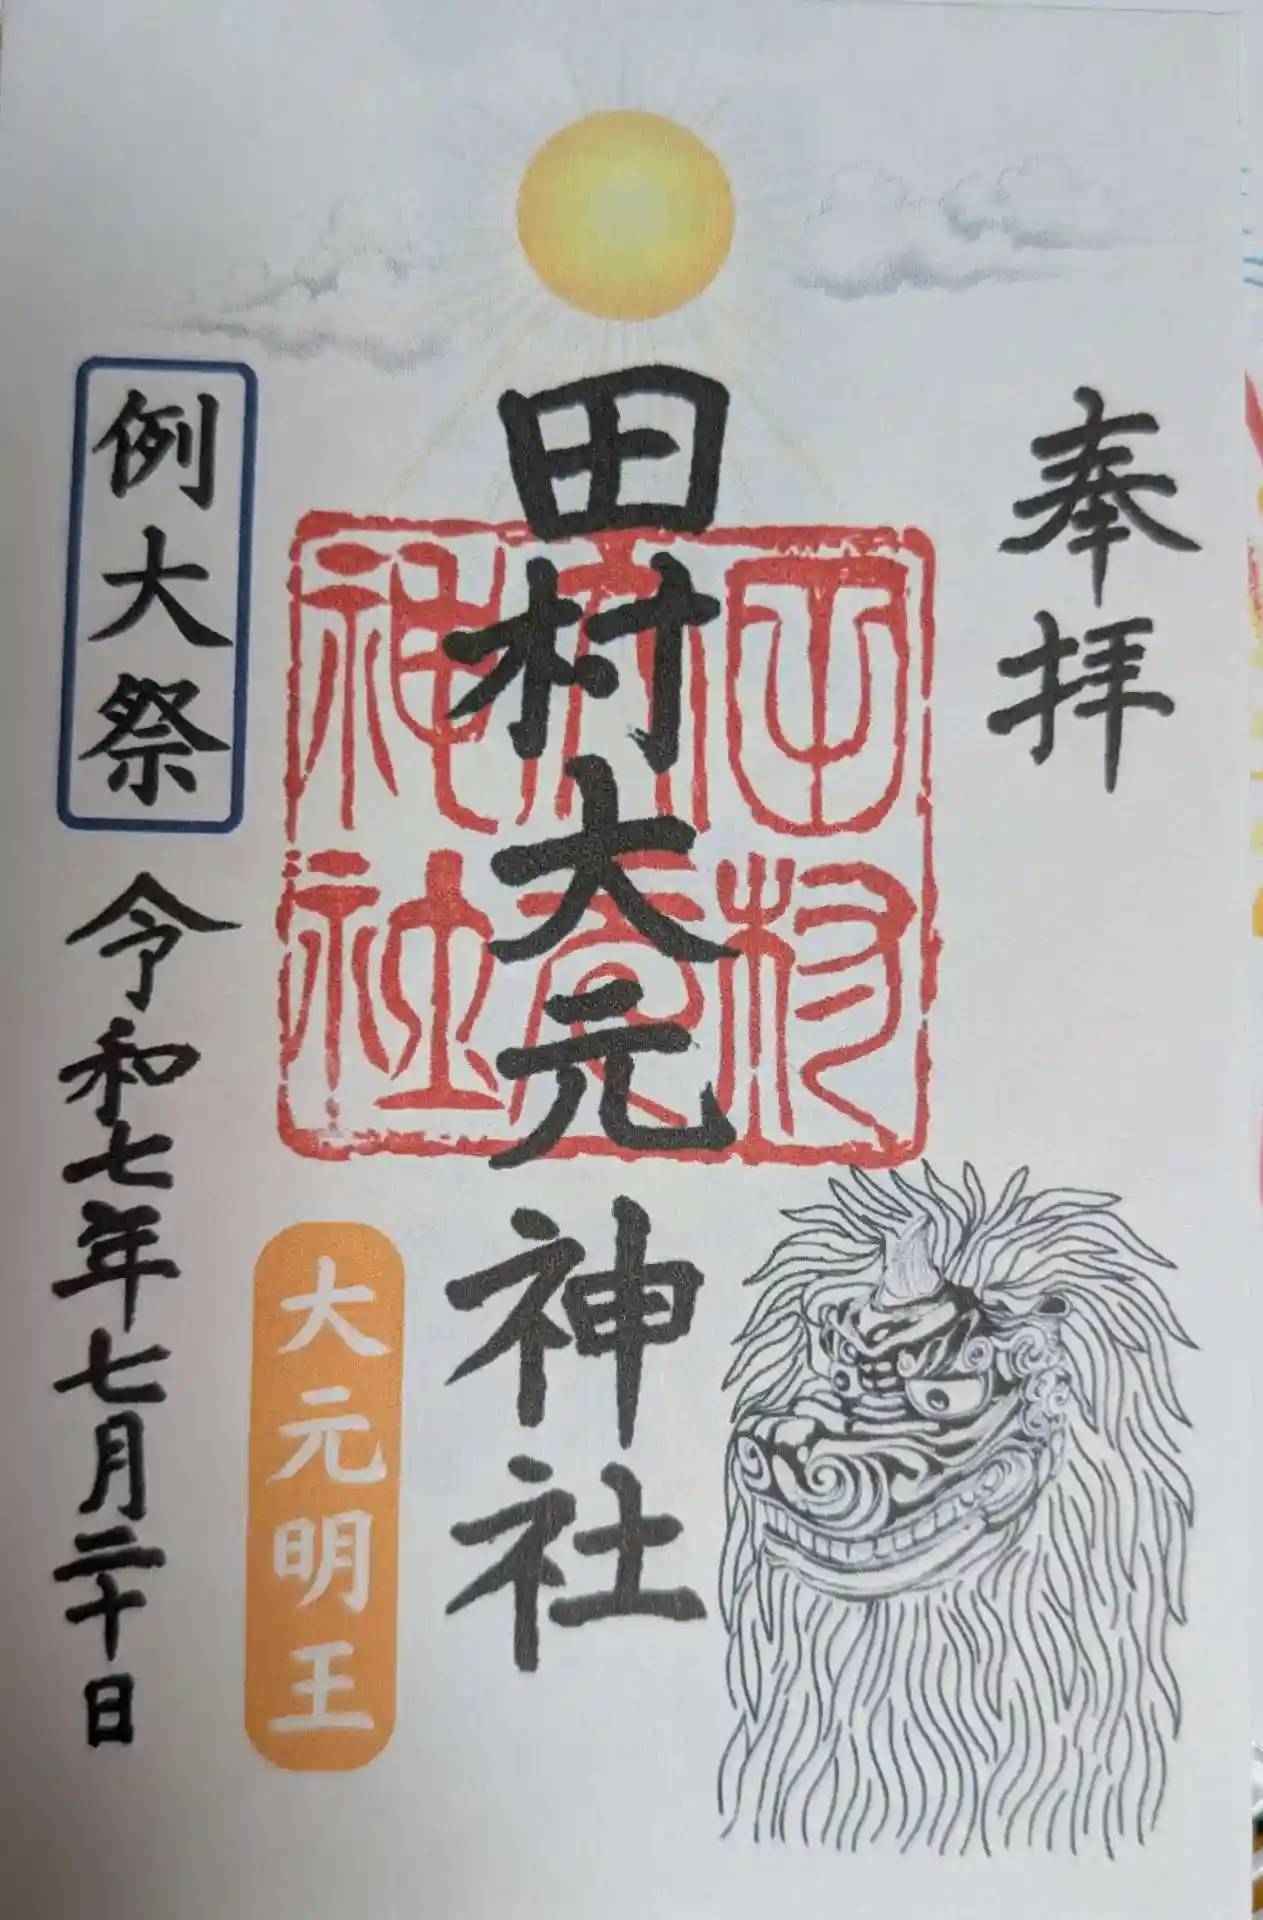 奉拝
田村大元神社
田村
大元
神社
大元明王
例大祭
令和七年七月二十日